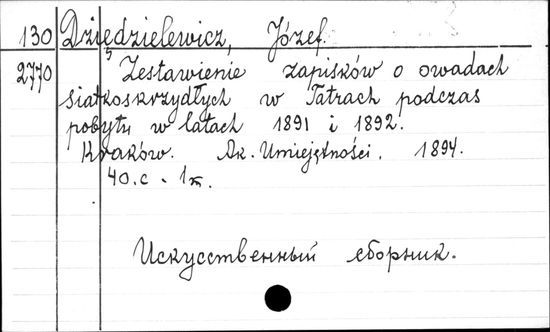 130 Dziędzielewicz, Józef.
2770 Zestawienie zapisków o owadach
siatkoskrzydłych w Tatrach podczas
pobytu w latach 1891 i 1892.
Kraków. Ak. Umiejętności. 1894.
40.c.
Искусственный сборник.